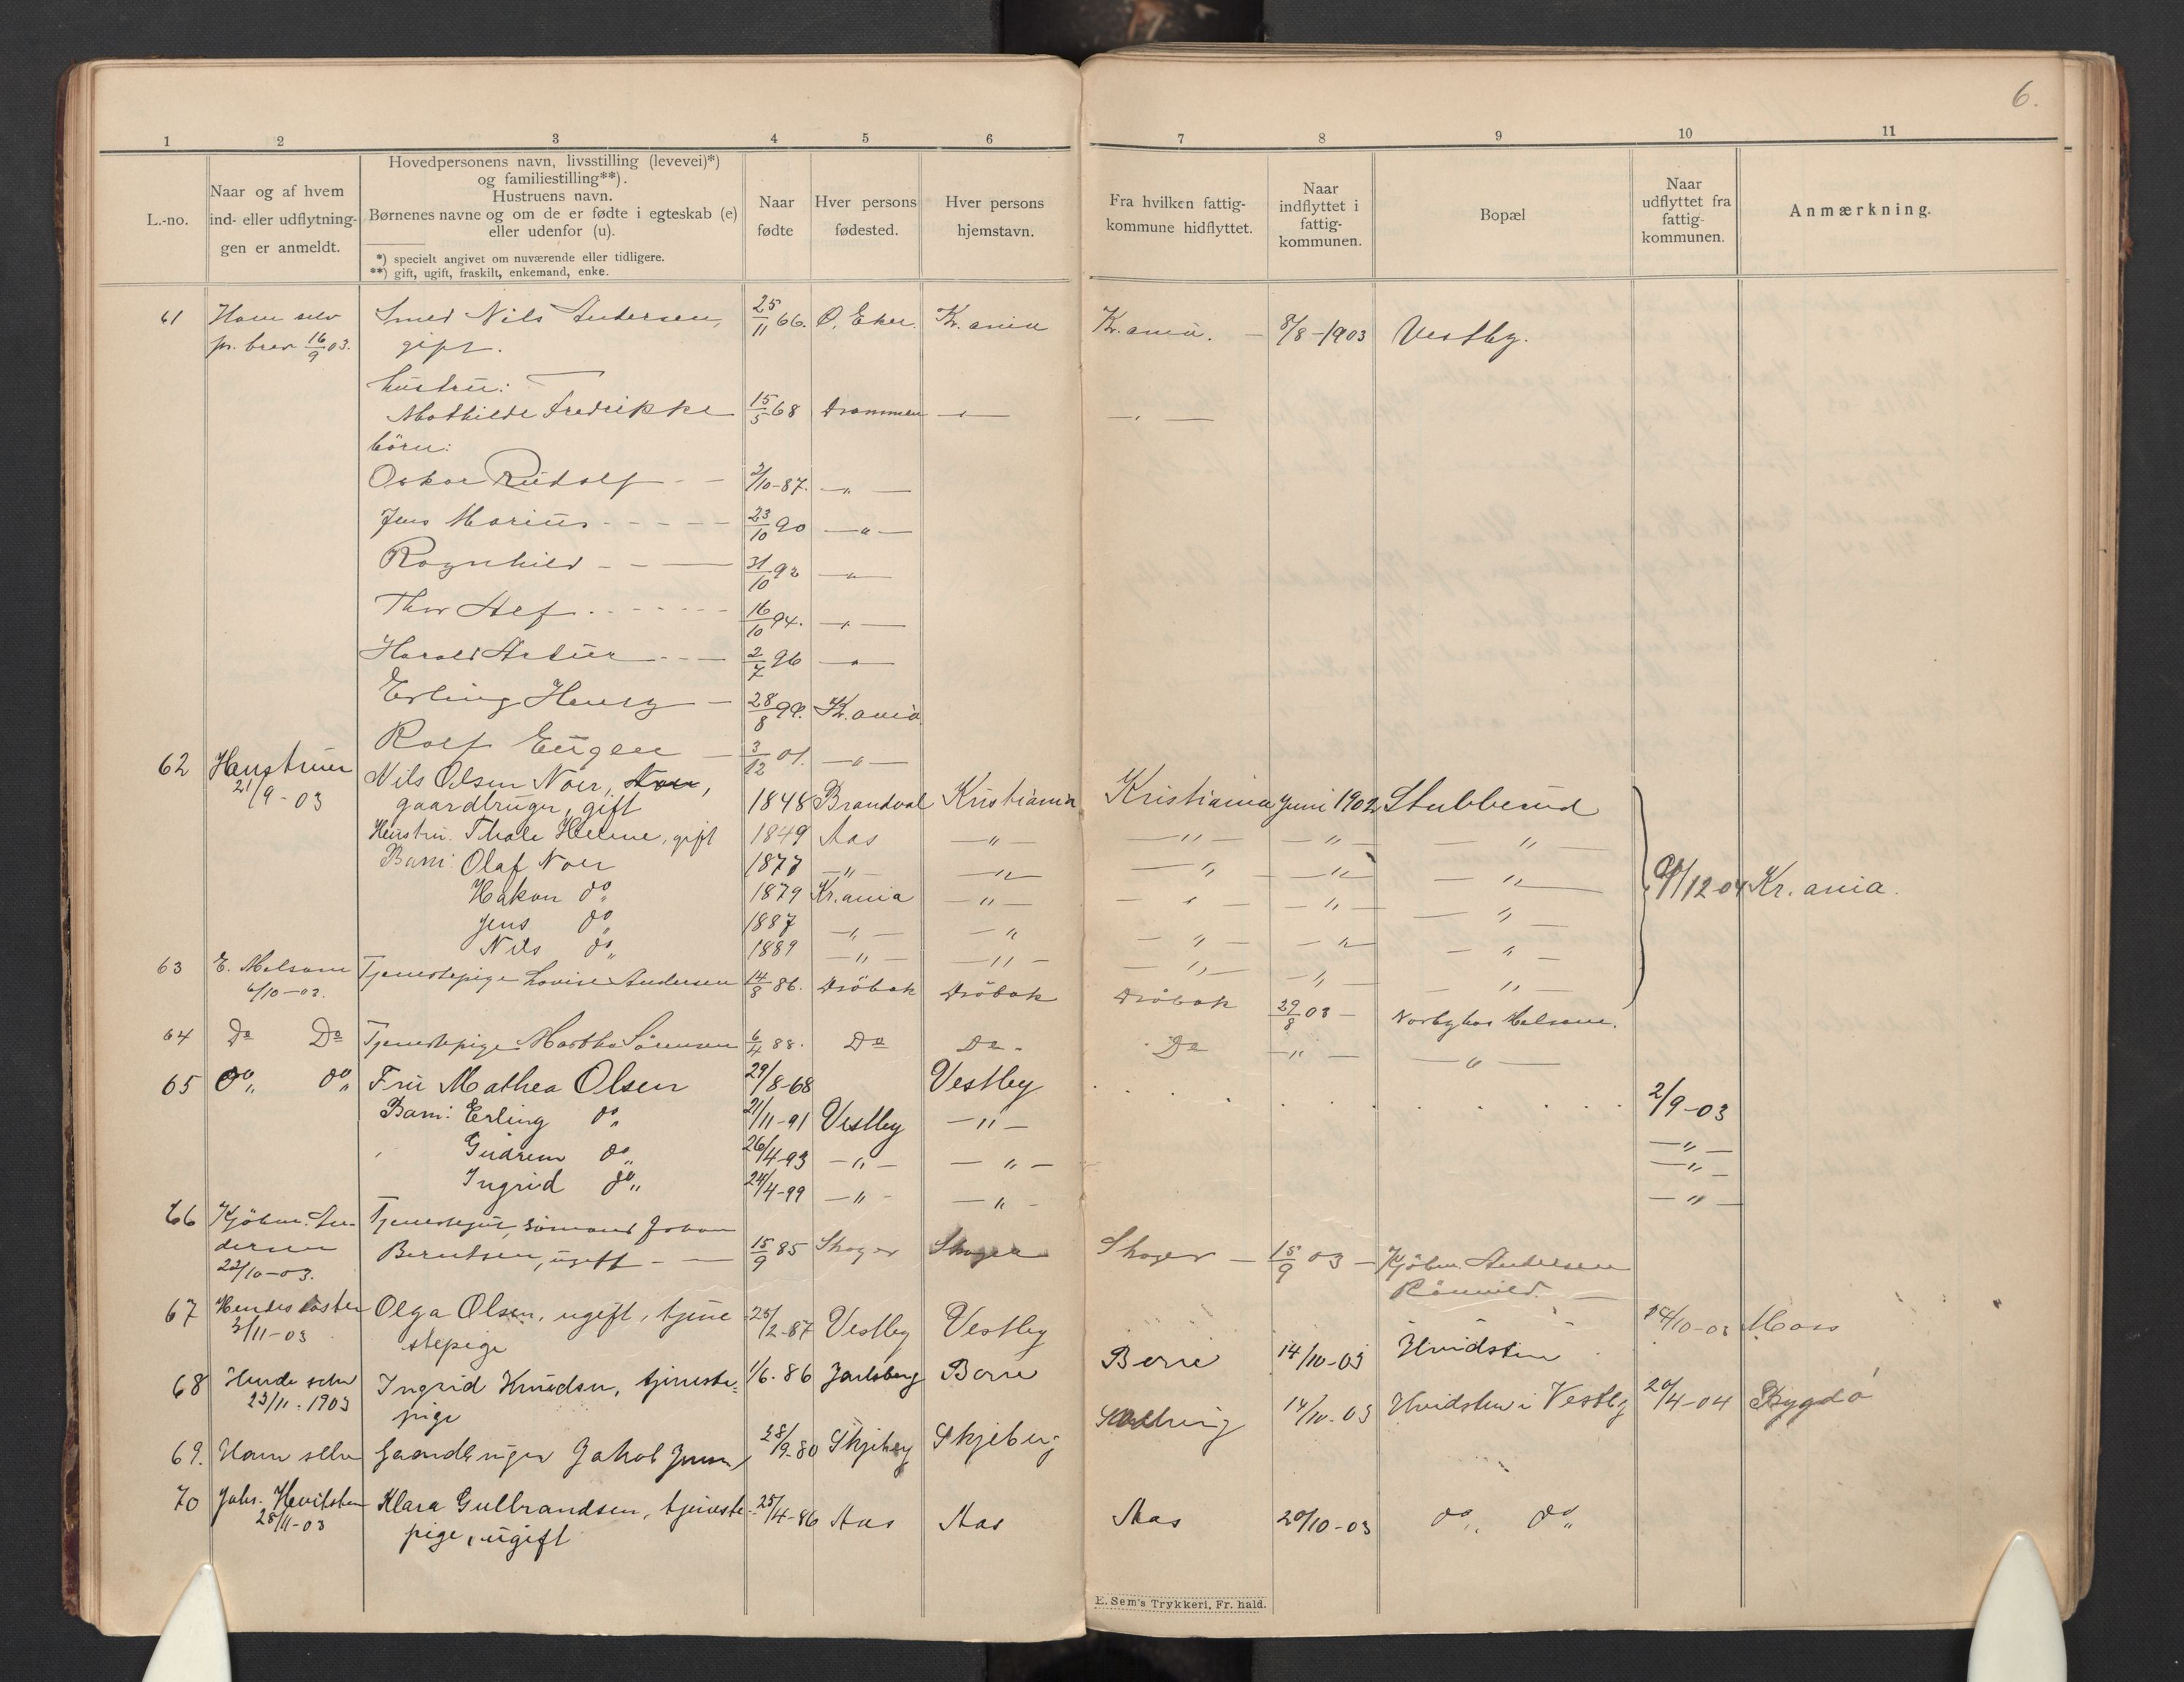 6.
1 2 3 4 5 6 7 8 9 10 11
L.-no.
Naar og af hvem
ind- eller udflytnin-
gen er anmeldt.
Hovedpersonens navn, livsstilling (levevei)*)
og familiestilling**).
Hustruens navn.
Børnenes navne og om de er fødte i egteskab (e)
eller udenfor (u).
*) specielt angivet om nuværende eller tidligere.
**) gift, ugift, fraskilt, enkemand, enke.
Naar
fødte
Hver persons
fødested.
Hver persons
hjemstavn.
Fra hvilken fattig-
kommune hidflyttet.
Naar
indflyttet i
fattig-
kommunen.
Bopæl
Naar
udflyttet fra
fattig-
kommunen.
Anmærkning.
61 Ham selv Smed Nils Andersen, 25/11 66. Ø. Eker Kr.ania Kr.ania. — 8/8-1903 Vestby.
pr. brev 16/9 03. gift.
hustru:
Mathilde Fredrikke 15/5 68 Drammen —"— —"—
börn:
Oskar Rudolf - - 2/10-87. —"—
Jens Marius - - - - 23/10 90 —"—
Ragnhild - - — 31/10 92 —"—
Thor Alf - - - - - 16/10 94. —"—
Harald Artur - - - 2/7 96 —"—
Erling Henry — 28/8 99. Kr.ania
Rolf Eugen — 3/12 01. —"—
62 Haustruen Nils Olsen Noer,
21/9-03 gaardbruger, gift 1848 Brandval Kristiania Kristiania Juni 1902 Stubberud
Hustru. Thale Helene, gift 1849 Aas —"— —"— —"— —"—
Barn: Olaf Noer 1877 —"— —"— —"— —"— —"— /12 04 Kr.ania.
Hakon do 1879 Kr.ania —"— —"— —"— —"—
Jens do 1887 —"— —"— —"— —"— —"—
Nils do 1889 —"— —"— —"— —"— —"—
63 E. Melsom Tjenestepige Lovise Andersen 14/8 86. Dröbak Dröbak Dröbak 29/8 03 — Norbyhus Melsom.
6/10-03.
64 Do Do Tjenestepige Martha Sörensen 6/4 88. Do Do Do —"— —"—
65 do do Fru Mathea Olsen 29/8-68 Vestby 2/9-03
Barn: Erling do 21/11-91 Vestby —"— —"—
Gudrun do 26/4-93 —"— —"— —"—
Ingrid do 24/4-99 —"— —"— —"—
66 Kjöbm. An- Tjenestegut, sömand Johan
dersen Berntsen, ugift — 15/9 85 Skoger Skoger Skoger — 15/9 03 — Kjöbm. Andersen
22/10-03.
67 Hendes söster Olga Olsen, ugift, tjene 25/2-87 Vestby Vestby /10-03 Moss
3/11-03 stepige
68 Hende selv Ingrid Knudsen, tjeneste= 1/6-86 Jarlsberg Borre Borre 14/10-03 Hvidsten
23/11-1903 pige
69. Ham selv Gaardbruger Jakob Jensen 28/9-80 Skjeberg Skjeberg 14/10-03 Hvidsten i Vestby 20/4-04 Bygdö
70 Johs. Hvitsten Klara Gulbrandsen, tjeneste- 25/4-86 Aas Aas Aas 20/10-03 do do
28/11-03 pige, ugift
E. Sem's Trykkeri, Fr. hald.